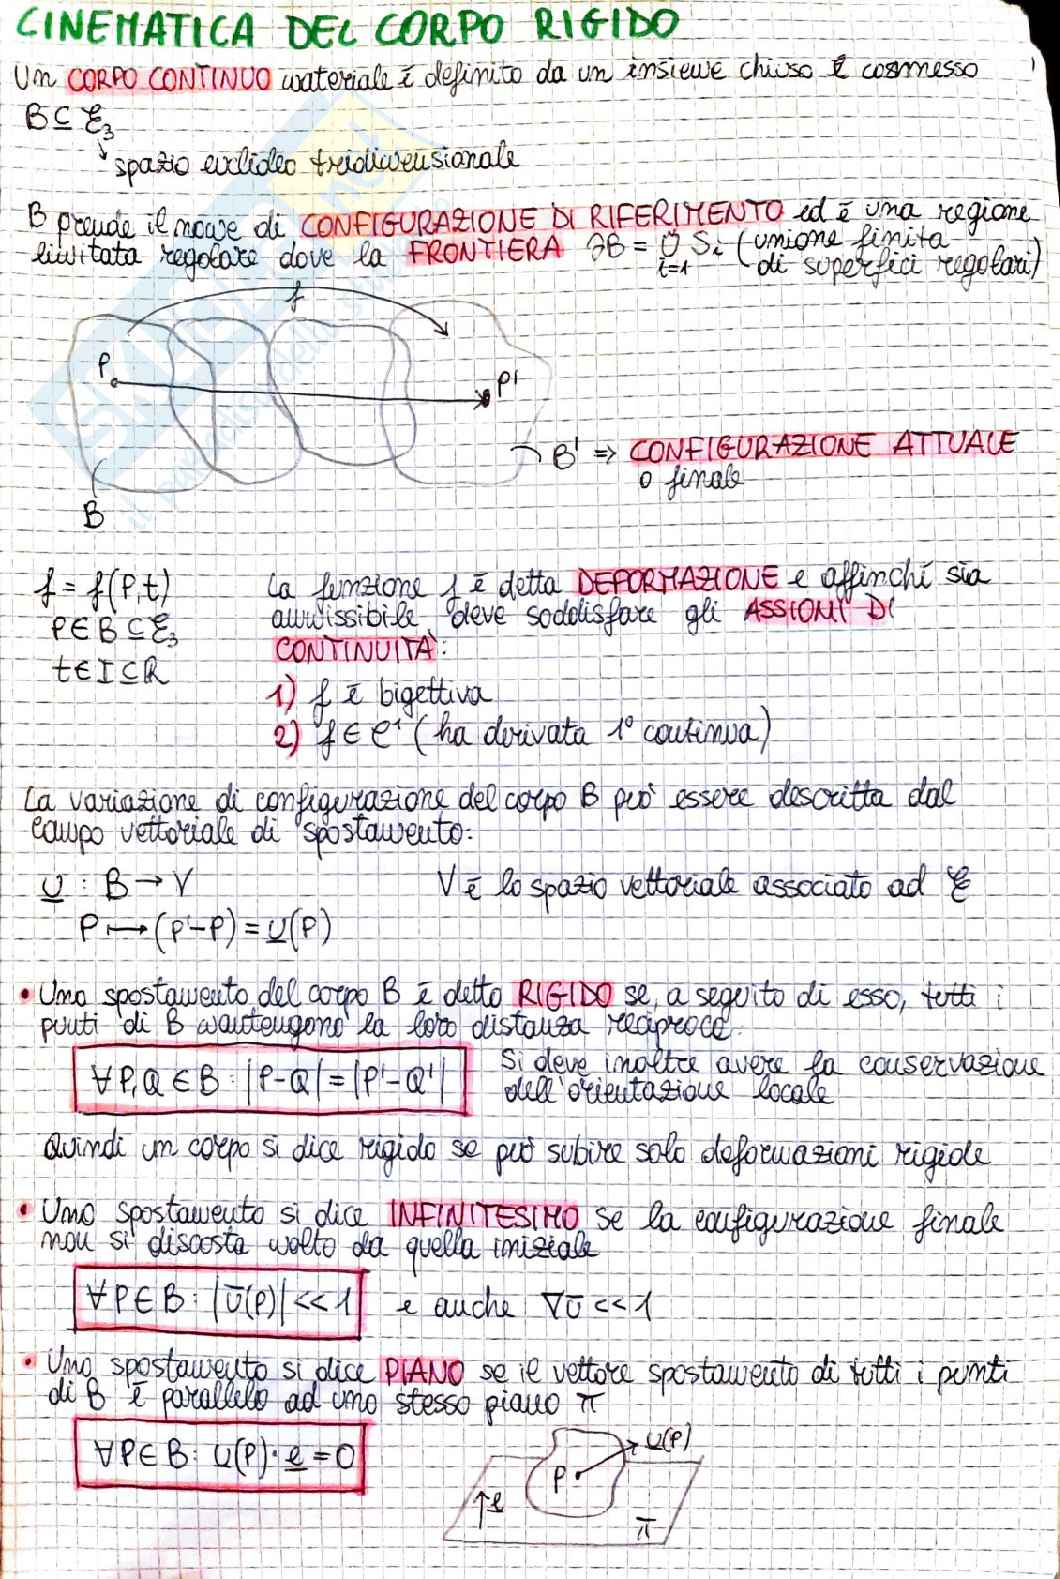 CINEMATICA DEL CORPO RIGIDO
1
Un CORPO CONTINUO materiale è definito da un insieme chiuso E connesso
B ⊆ ℰ₃
↳ spazio euclideo tridimensionale
B prende il nome di CONFIGURAZIONE DI RIFERIMENTO ed è una regione
limitata regolare dove la FRONTIERA ∂B = ∪ᵢ₌₁ⁿ Sᵢ (unione finita
di superfici regolari)
f
P
P'
B' ⇒ CONFIGURAZIONE ATTUALE
o finale
B
f = f(P,t)
P ∈ B ⊆ ℰ₃
t ∈ I ⊆ ℝ
La funzione f è detta DEFORMAZIONE e affinchè sia
ammissibile deve soddisfare gli ASSIOMI DI
CONTINUITÀ:
1) f è bigettiva
2) f ∈ C¹ (ha derivata 1° continua)
La variazione di configurazione del corpo B può essere descritta dal
campo vettoriale di spostamento:
U : B → V
V è lo spazio vettoriale associato ad ℰ
P ⟼ (P'-P) = U(P)
• Uno spostamento del corpo B è detto RIGIDO se, a seguito di esso, tutti i
punti di B mantengono la loro distanza reciproca.
∀P,Q ∈ B : |P-Q| = |P'-Q'|
Si deve inoltre avere la conservazione
dell'orientazione locale
Quindi un corpo si dice rigido se può subire solo deformazioni rigide
• Uno spostamento si dice INFINITESIMO se la configurazione finale
non si discosta molto da quella iniziale
∀P ∈ B : |U̅(P)| << 1 e anche ∇U̅ << 1
• Uno spostamento si dice PIANO se il vettore spostamento di tutti i punti
di B è parallelo ad uno stesso piano π
∀P ∈ B : U(P) · e = 0
U(P)
P
e
π